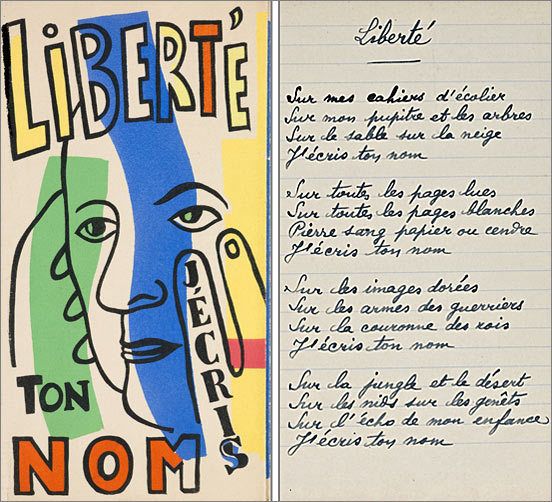 LiBERTÉ
J'ÉCRIS
TON
NOM
Liberté
Sur mes cahiers d'écolier
Sur mon pupitre et les arbres
Sur le sable sur la neige
J'écris ton nom
Sur toutes les pages lues
Sur toutes les pages blanches
Pierre sang papier ou cendre
J'écris ton nom
Sur les images dorées
Sur les armes des guerriers
Sur la couronne des rois
J'écris ton nom
Sur la jungle et le désert
Sur les nids sur les genêts
Sur l'écho de mon enfance
J'écris ton nom